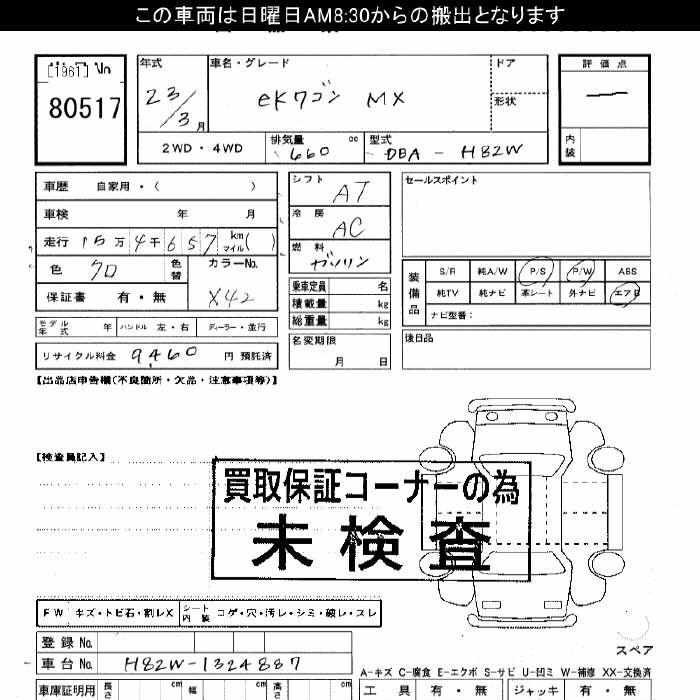 この車両は日曜日AM8:30からの搬出となります
[1961] No
80517
年式 車名・グレード ドア 評価点
23/3月 eKワゴン MX 形状 —
2WD・4WD 排気量 660 cc 型式 DBA - H82W 内装
車歴 自家用・( )
車検 年 月
走行 15万4千657 km マイル( )
色 クロ 色替 カラーNo. X42
保証書 有・無
シフト AT
冷房 AC
燃料 ガソリン
乗車定員 名
積載量 kg
総重量 kg
名変期限 月 日
セールスポイント
装備品 S/R 純A/W P/S P/W ABS
純TV 純ナビ 革シート 外ナビ エアB
ナビ型番:
後日品
モデル年式 年 ハンドル 左・右 ディーラー・並行
リサイクル料金 9,460 円 預託済
【出品店申告欄(不良箇所・欠品・注意事項等)】
【検査員記入】
買取保証コーナーの為
未検査
FW キズ・トビ石・割レX シート内装 コゲ・穴・汚レ・シミ・破レ・スレ
登録No.
車台No. H82W-1324887
車庫証明用 長さ cm 幅 cm 高さ cm
スペア
A-キズ C-腐食 E-エクボ S-サビ U-凹ミ W-補修 XX-交換済
工具 有・無 ジャッキ 有・無